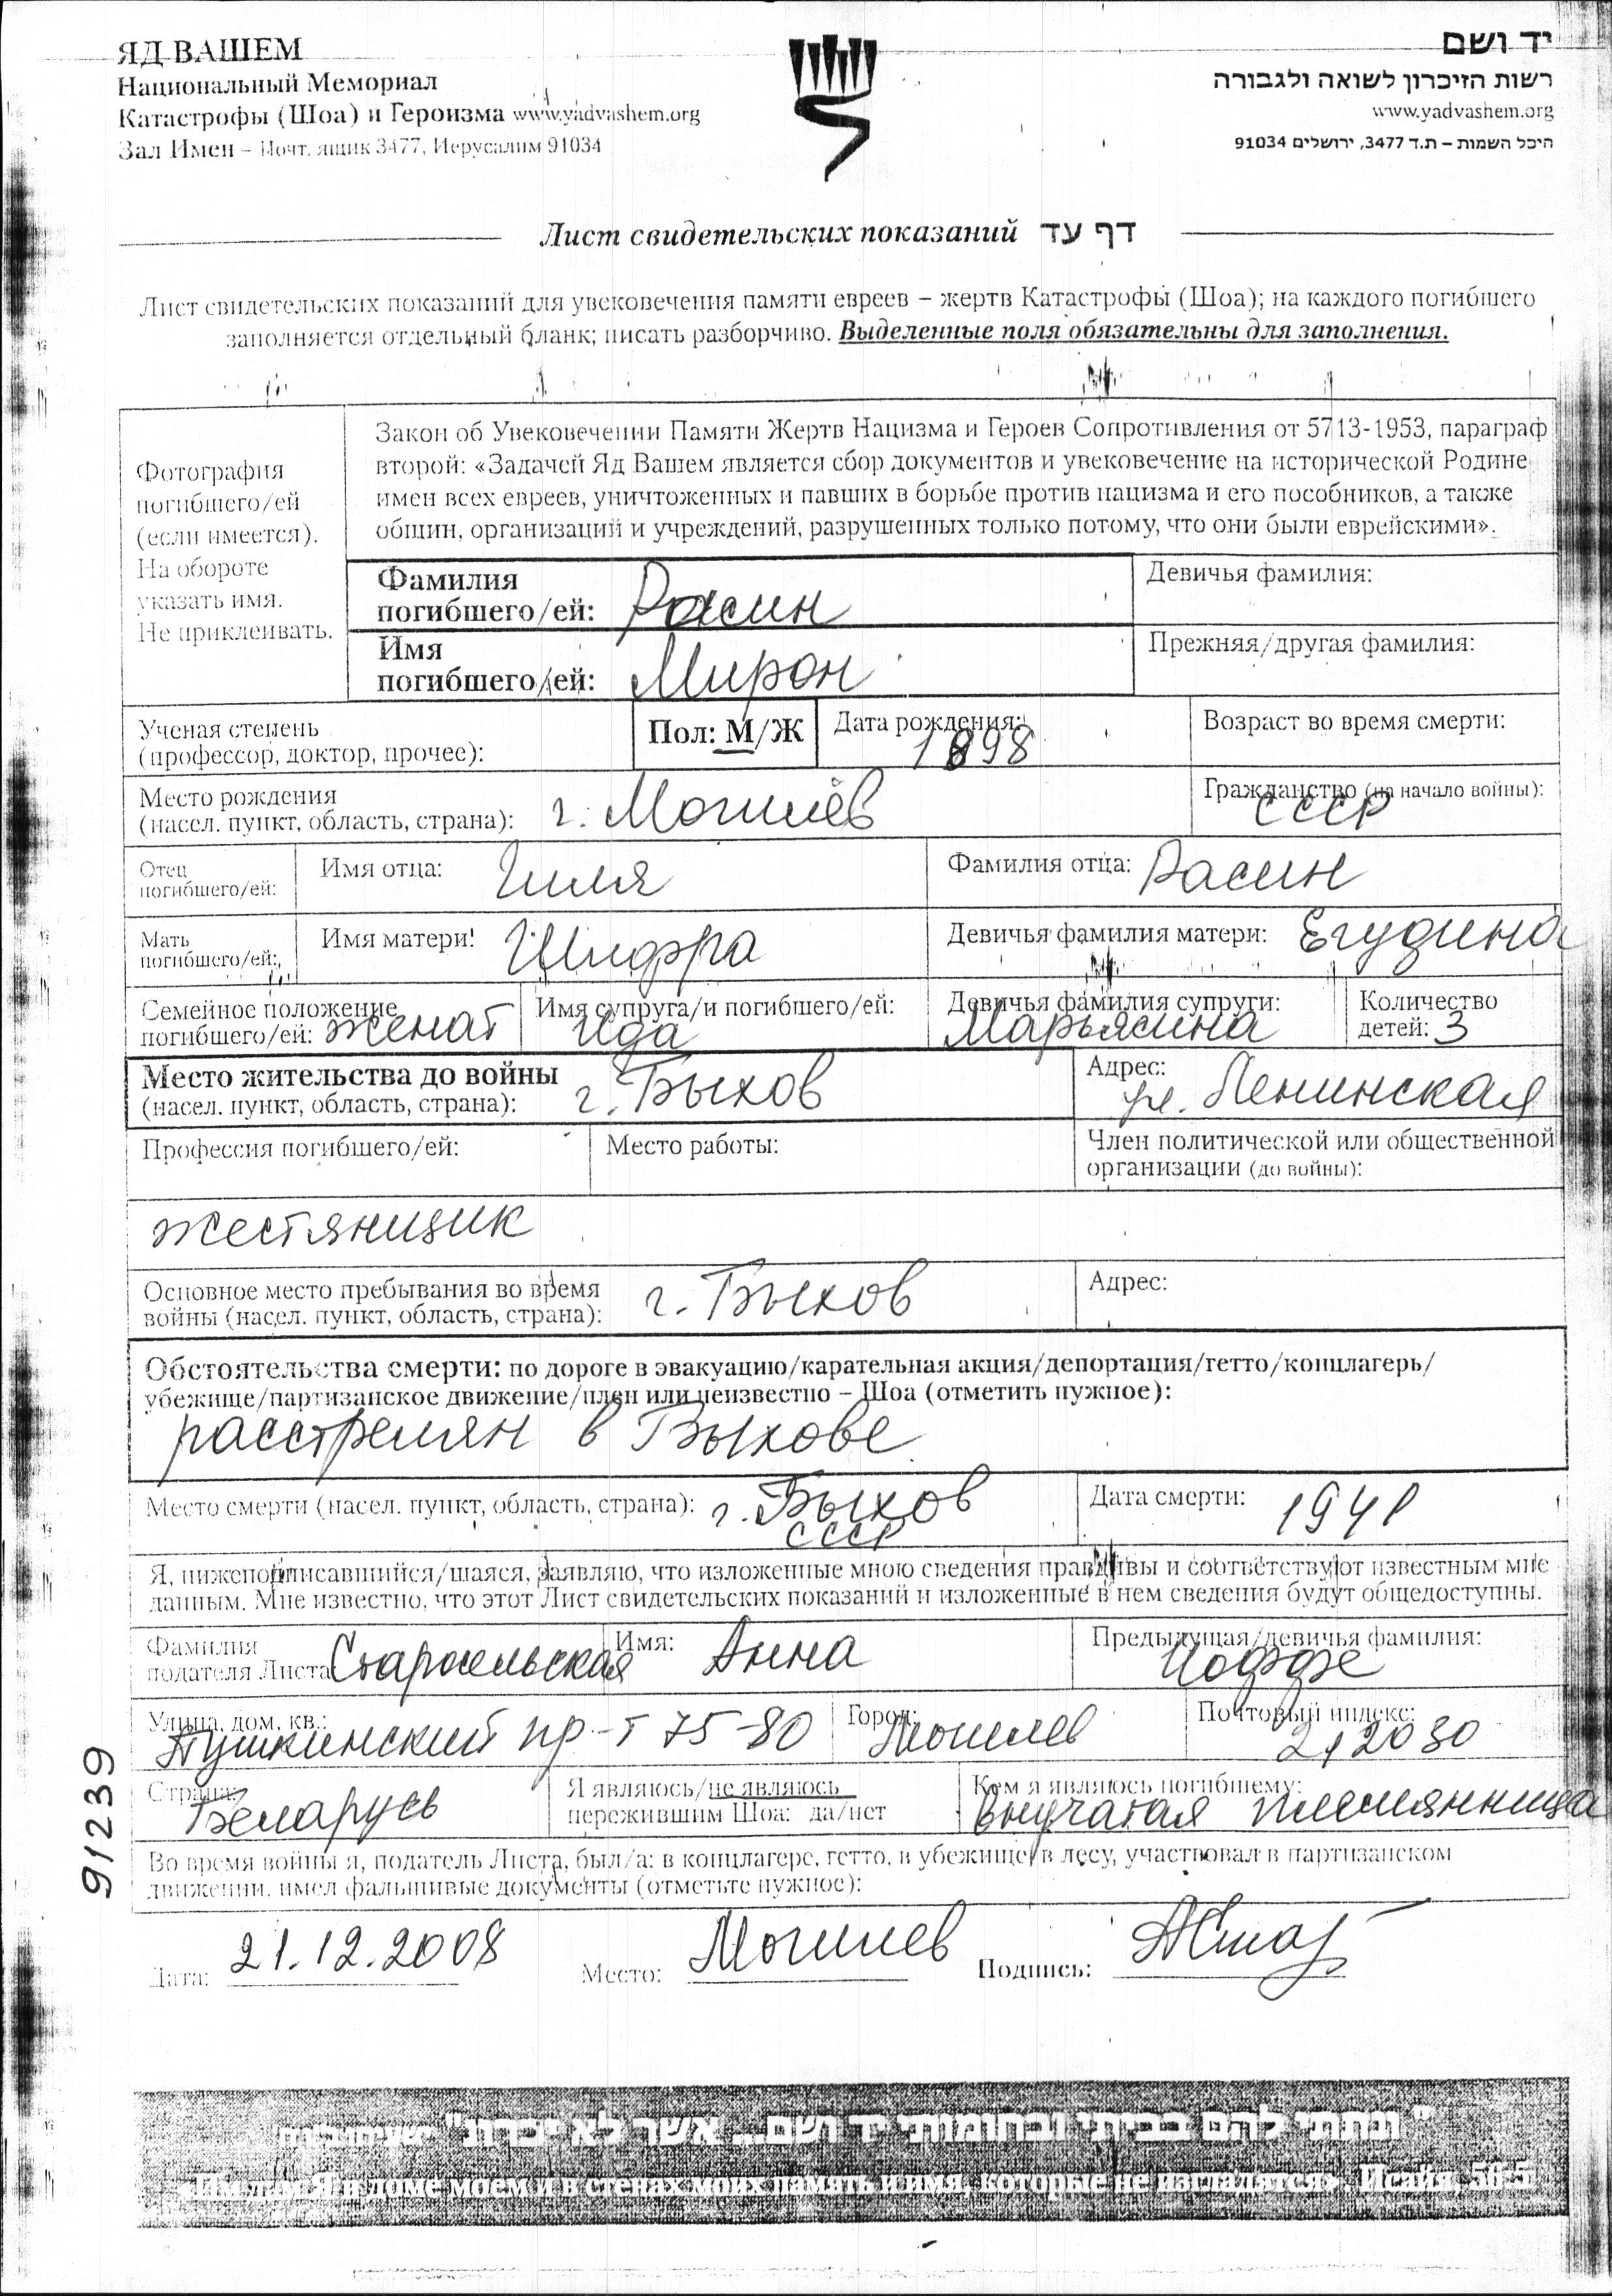 ЯД ВАШЕМ
Национальный Мемориал
Катастрофы (Шоа) и Героизма www.yadvashem.org
Зал Имен – Почт. ящик 3477, Иерусалим 91034
יד ושם
רשות הזיכרון לשואה ולגבורה
www.yadvashem.org
היכל השמות – ת.ד 3477, ירושלים 91034
Лист свидетельских показаний דף עד
Лист свидетельских показаний для увековечения памяти евреев – жертв Катастрофы (Шоа); на каждого погибшего
заполняется отдельный бланк; писать разборчиво. Выделенные поля обязательны для заполнения.
Фотография
погибшего/ей
(если имеется).
На обороте
указать имя.
Не приклеивать.
Закон об Увековечении Памяти Жертв Нацизма и Героев Сопротивления от 5713-1953, параграф
второй: «Задачей Яд Вашем является сбор документов и увековечение на исторической Родине
имен всех евреев, уничтоженных и павших в борьбе против нацизма и его пособников, а также
общин, организаций и учреждений, разрушенных только потому, что они были еврейскими».
Фамилия
погибшего/ей: Расин
Девичья фамилия:
Имя
погибшего/ей: Мирон
Прежняя/другая фамилия:
Ученая степень
(профессор, доктор, прочее):
Пол: М/Ж
Дата рождения: 1898
Возраст во время смерти:
Место рождения
(насел. пункт, область, страна): г. Могилёв
Гражданство (на начало войны):
СССР
Отец
погибшего/ей:
Имя отца: Гиля
Фамилия отца: Расин
Мать
погибшего/ей:
Имя матери: Шифра
Девичья фамилия матери: Егудина
Семейное положение
погибшего/ей: женат
Имя супруга/и погибшего/ей:
Ида
Девичья фамилия супруги:
Марьясина
Количество
детей: 3
Место жительства до войны
(насел. пункт, область, страна): г. Быхов
Адрес:
ул. Ленинская
Профессия погибшего/ей:
Место работы:
Член политической или общественной
организации (до войны):
жестянщик
Основное место пребывания во время
войны (насел. пункт, область, страна): г. Быхов
Адрес:
Обстоятельства смерти: по дороге в эвакуацию/карательная акция/депортация/гетто/концлагерь/
убежище/партизанское движение/плен или неизвестно – Шоа (отметить нужное):
расстрелян в Быхове
Место смерти (насел. пункт, область, страна): г. Быхов
СССР
Дата смерти: 1941
Я, нижеподписавшийся/шаяся, заявляю, что изложенные мною сведения правдивы и соответствуют известным мне
данным. Мне известно, что этот Лист свидетельских показаний и изложенные в нем сведения будут общедоступны.
Фамилия
подателя Листа Старосельская
Имя: Анна
Предыдущая/девичья фамилия:
Иоффе
Улица, дом, кв.:
Пушкинский пр-т 75-80
Город:
Могилев
Почтовый индекс:
212030
Страна:
Беларусь
Я являюсь/не являюсь
пережившим Шоа: да/нет
Кем я являюсь погибшему:
внучатая племянница
Во время войны я, податель Листа, был/а: в концлагере, гетто, в убежище, в лесу, участвовал в партизанском
движении, имел фальшивые документы (отметьте нужное):
Дата: 21.12.2008
Место: Могилев
Подпись:
91239
"ונתתי להם בביתי ובחומותי יד ושם... אשר לא יכרת"
«Им дам Я в доме моем и в стенах моих память и имя, которые не изгладятся». Исайя, 56:5